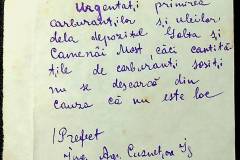 Urgentați primirea
carburanților și uleiilor
dela depozitul Golta și
Camenăi Most, căci cantită
țile de carburanți sosiți
nu se descarcă din
cauza că nu este loc
/ Prefect
Ing. Agr.